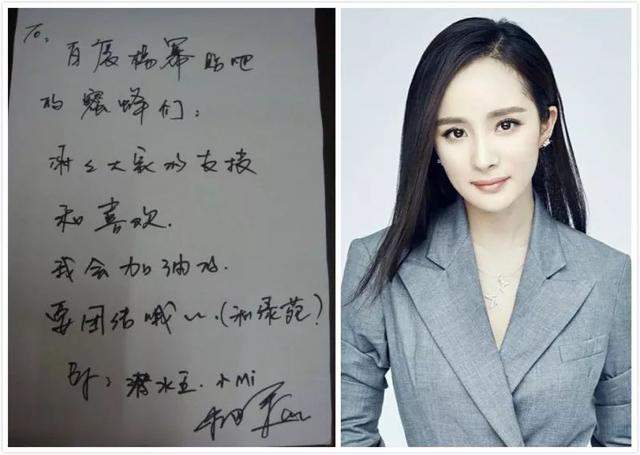 To:
百度楊幂贴吧
的蜜蜂们:
谢谢大家的支持
和喜欢.
我会加油的.
要团结哦~~.(和绿苑?)
By: 潜水王.小Mi